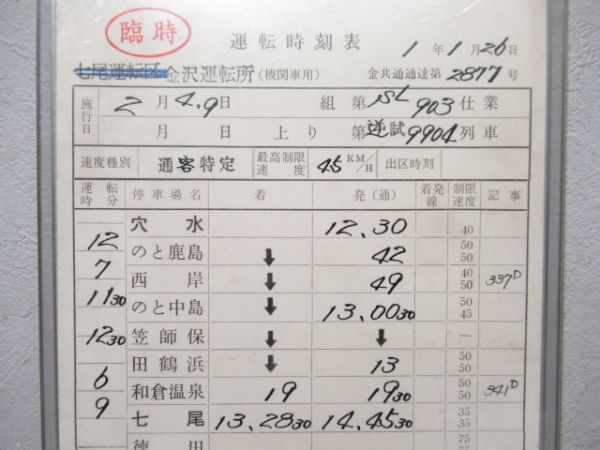 臨時
運転時刻表
1年1月26日
七尾運転区 金沢運転所(機関車用) 金共通通達第2877号
施行日 2月4.9日 組 第JSL903仕業
月 日 上り 第逆試9904列車
速度種別 通客特定 最高制限速度 45 KM/H 出区時刻
運転時分 停車場名 着 発(通) 着発線 制限速度 記事
穴水 12.30 40
12 のと鹿島 ↓ 42 50 50
7 西岸 ↓ 49 40 50 337D
11 30 のと中島 ↓ 13.00 30 50 45
笠師保 ↓ ↓ —
12 30 田鶴浜 ↓ 13 50 50
6 和倉温泉 19 19 30 50 50 341D
9 七尾 13.28 30 14.45 30 35 35
徳田 75